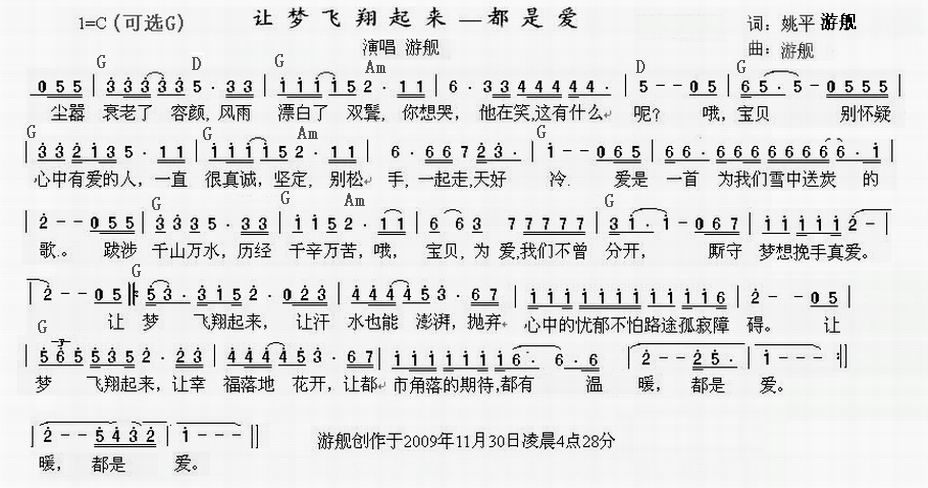 让梦飞翔起来—都是爱
1=C(可选G) 词：姚平 游舰
演唱 游舰 曲：游舰
G D G Am D G
0 5 5 | 3 3 3 3 3 5 · 3 3 | 1 1 1 1 5 2 · 1 1 | 6 · 3 3 4 4 4 4 4 · | 5 - - 0 5 | 6 5 · 5 - 0 5 5 |
尘嚣 衰老了 容颜，风雨 漂白了 双鬓，你想哭，他在笑，这有什么 呢？ 哦，宝贝 别怀疑
G G Am G
3 3 2 1 3 5 · 1 1 | 1 1 1 1 5 2 · 1 1 | 6 · 6 6 7 2 3 · | 1 - - 0 6 5 | 6 6 · 6 6 6 6 6 6 6 6 · 1 |
心中有爱的人，一直 很真诚，坚定，别松 手，一起走，天好 冷. 爱是 一首 为我们雪中送炭 的
G G Am G
2 - - 0 5 5 | 3 3 3 5 · 3 3 | 1 1 5 2 · 1 1 | 6 6 3 7 7 7 7 7 | 3 1 · 1 - 0 6 7 | 1 1 1 1 1 2 - |
歌.。 跋涉 千山万水，历经 千辛万苦，哦， 宝贝，为 爱,我们不曾 分开， 厮守 梦想挽手真爱。
G
2 - - 0 5 ‖: 5 3 · 3 1 5 2 · 0 2 3 | 4 4 4 4 5 3 · 6 7 | 1 1 1 1 1 1 1 1 1 1 1 6 | 2 - - 0 5 |
让 梦 飞翔起来， 让汗 水也能 澎湃，抛弃 心中的忧郁不怕路途孤寂障 碍。 让
G
5 6 5 5 3 5 2 · 2 3 | 4 4 4 4 5 3 · 6 7 | 1 1 1 1 1 1 1 6 · 6 · 6 | 2 - - 2 5 · | 1 - - - :‖
梦 飞翔起来，让幸 福落地 花开，让都 市角落的期待,都有 温 暖， 都是 爱。
2 - - 5 4 3 2 | 1 - - - ‖
游舰创作于2009年11月30日凌晨4点28分
暖， 都是 爱。